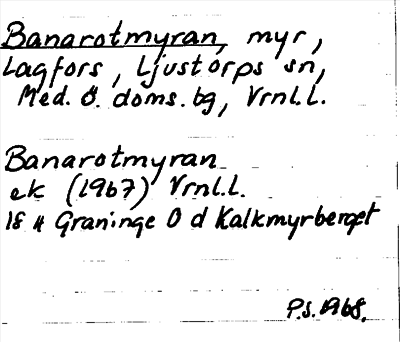 Banarotmyran, myr,
Lagfors, Ljustorps sn,
Med. Ö. doms. bg, Vrnl.L.
Banarotmyran
ek (1967) Vrnl.L.
18 H Graninge O d Kalkmyrberget
P.S. 1968.